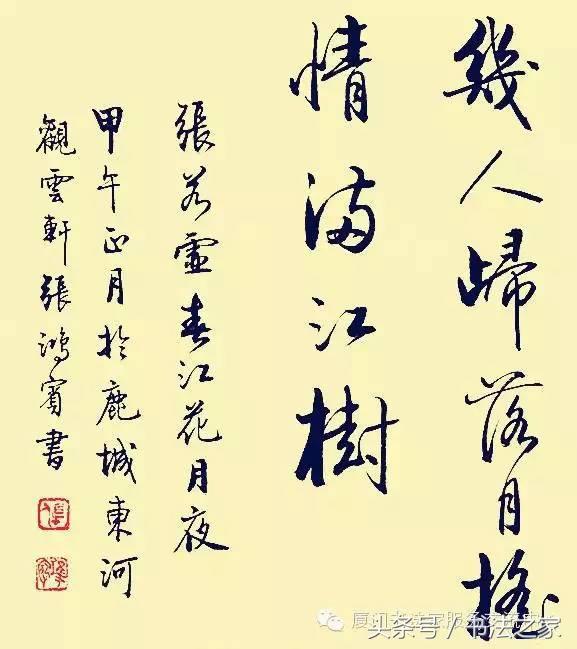 幾人歸落月搖
情滿江樹
張若虛春江花月夜
甲午正月於鹿城東河
觀雲軒張鴻賓書
头条号/书法之家